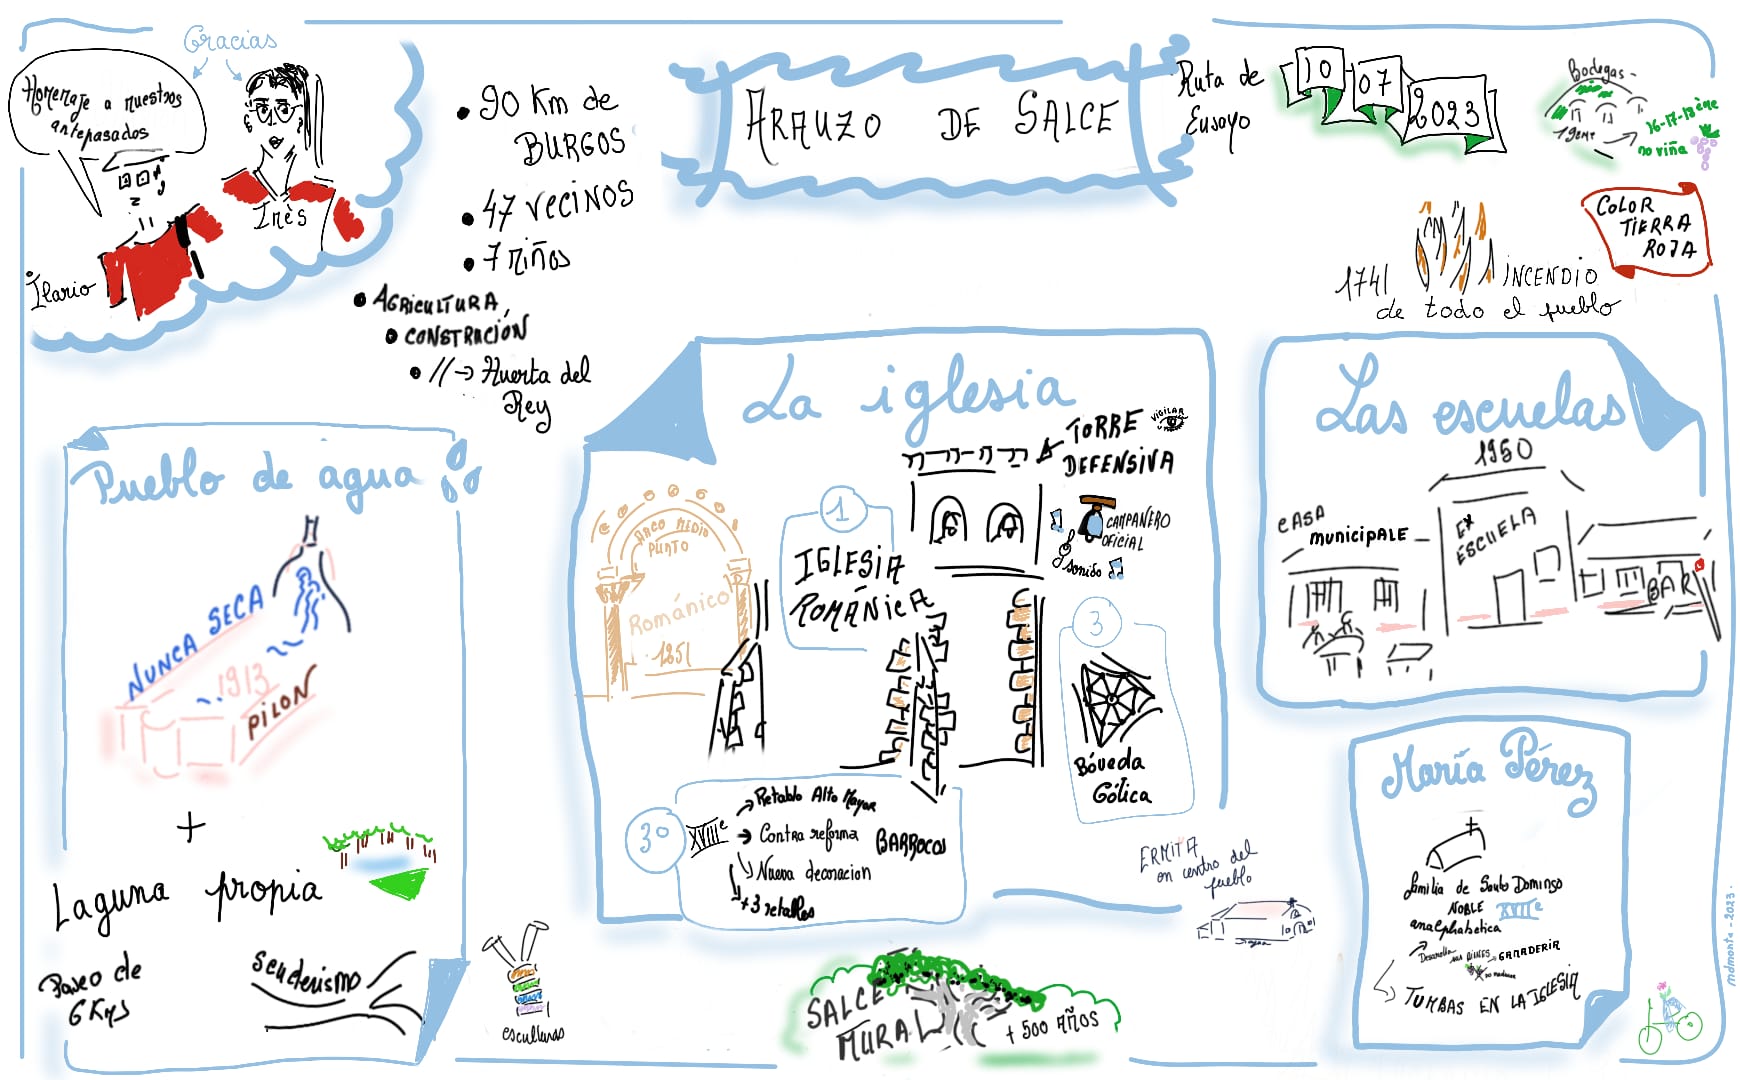 Gracias
Homenaje a nuestros
antepasados
Inès
Ilario
• 90 Km de
BURGOS
• 47 vecinos
• 7 niños
• AGRICULTURA,
• CONSTRACIÓN
• // → Huerta del
Rey
ARAUZO DE SALCE
Ruta de
Ensayo
10 07 2023
Bodegas -
19eme
16-17-18ème
no viña
COLOR
TIERRA
ROJA
1741 INCENDIO
de todo el pueblo
Pueblo de agua
NUNCA SECA
1913
PILON
+
Laguna propia
Paseo de
6 Kms
Senderismo
esculturas
La iglesia
TORRE
DEFENSIVA
VIGILAR
ARCO MEDIO
PUNTO
Románico
1251
1
IGLESIA
ROMÁNICA
CAMPAÑERO
OFICIAL
sonido
3
Bóveda
Gótica
3º
XVIIIe
Retablo Alto Mayor
Contra reforma
BARROCOS
Nueva decoracion
+3 retablos
ERMITA
en centro del
pueblo
SALCE
MURAL
+ 500 AÑOS
Las escuelas
1960
CASA
municipALE
EX
ESCUELA
BAR
María Pérez
familia de Santo Domingo
NOBLE XVIIe
analphabetica
GANADERIA
TUMBAS EN LA IGLESIA
mdmonta - 2023.